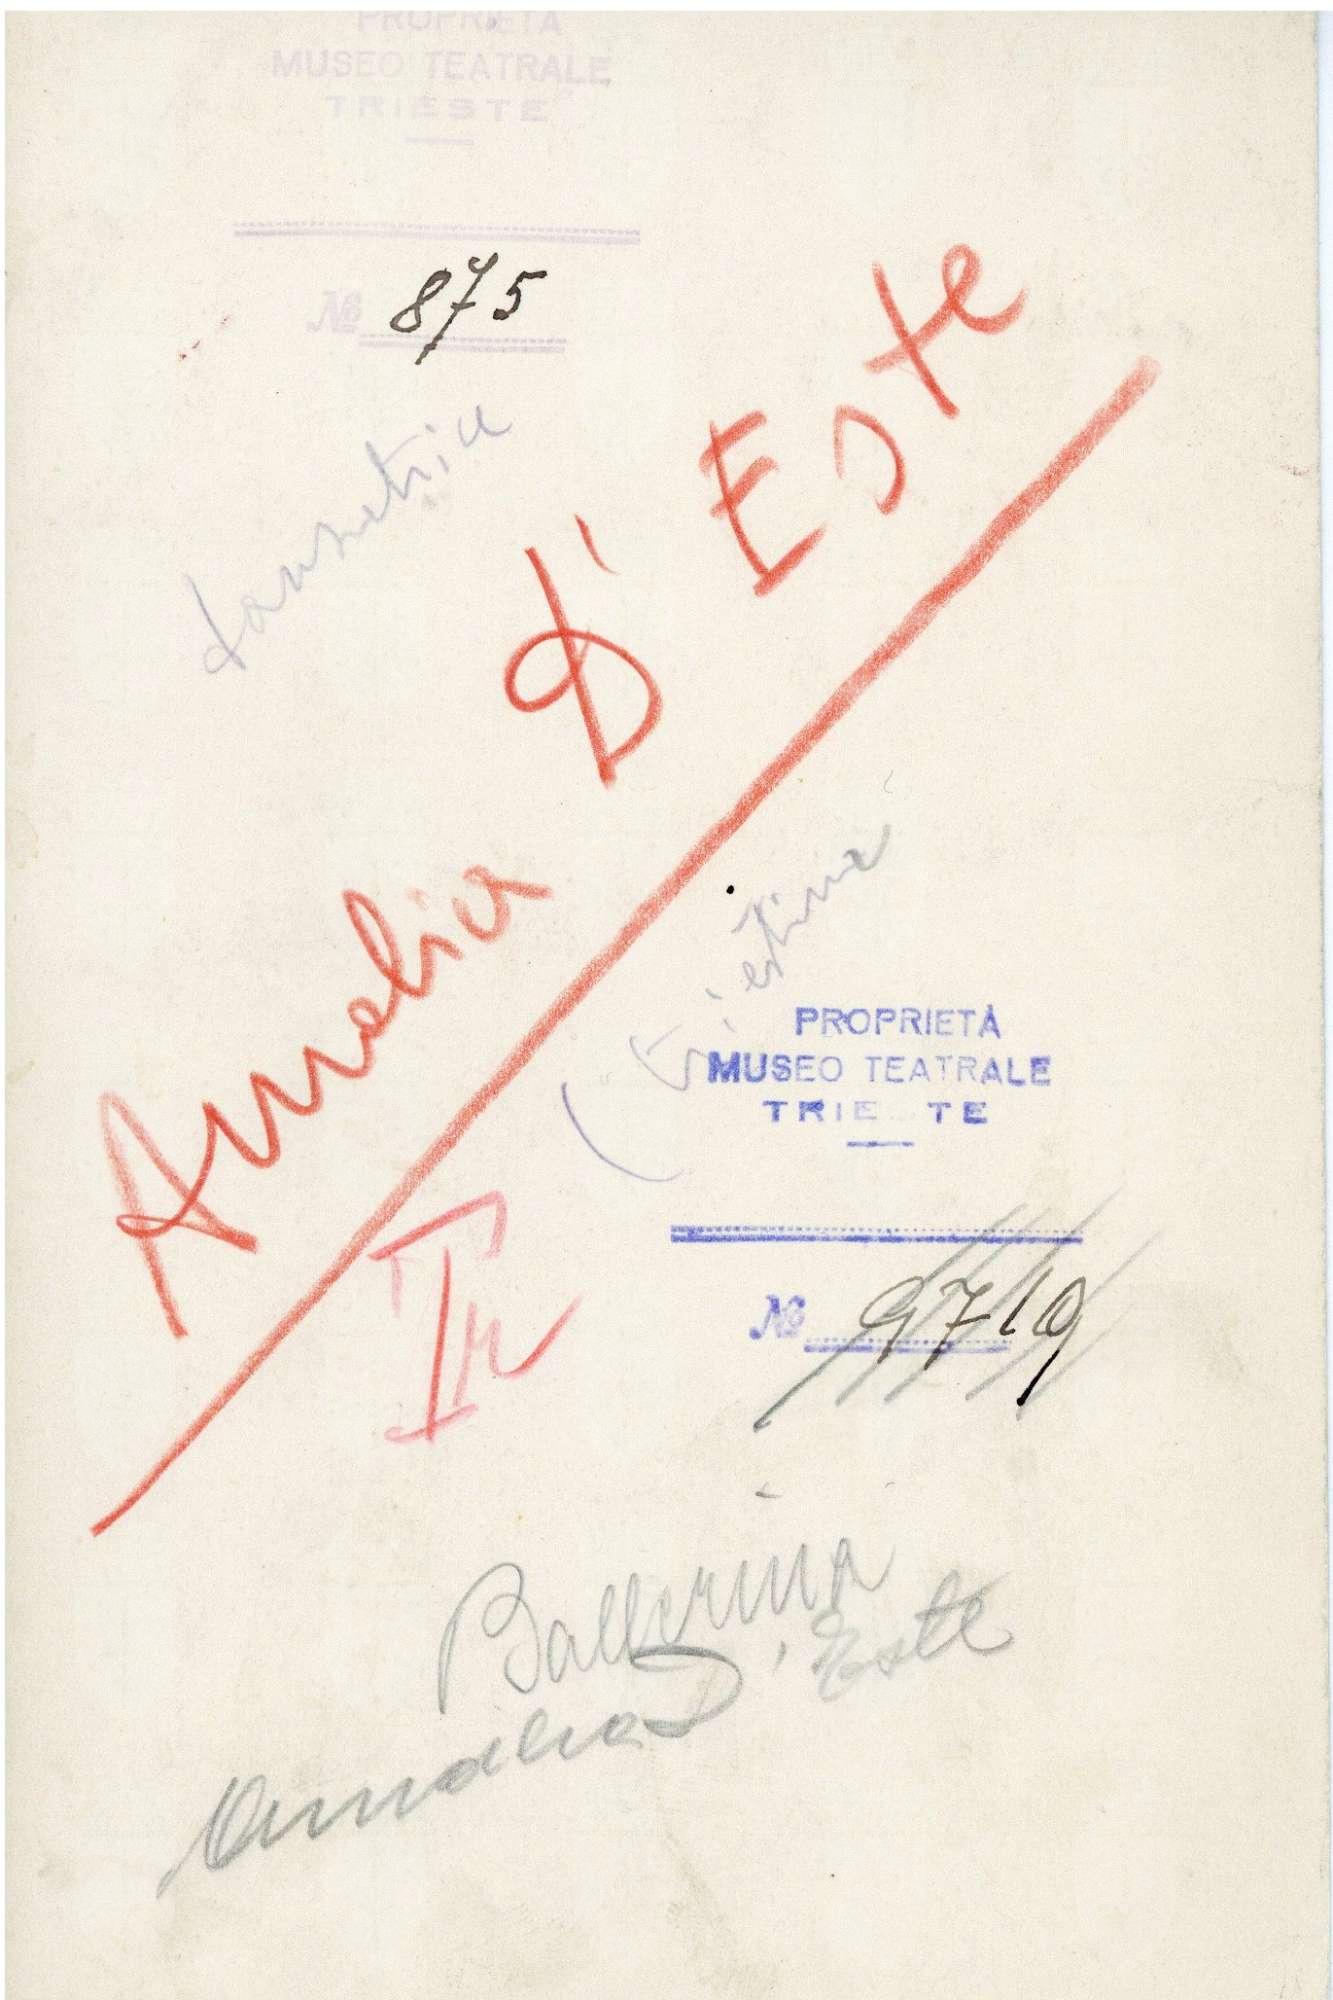 PROPRIETÀ
MUSEO TEATRALE
TRIESTE
№ 875
danzatrice
Amelia D'Este
(Triestina
PROPRIETÀ
MUSEO TEATRALE
TRIE TE
№ 9719
Tr
Ballerina
Amalia D'Este